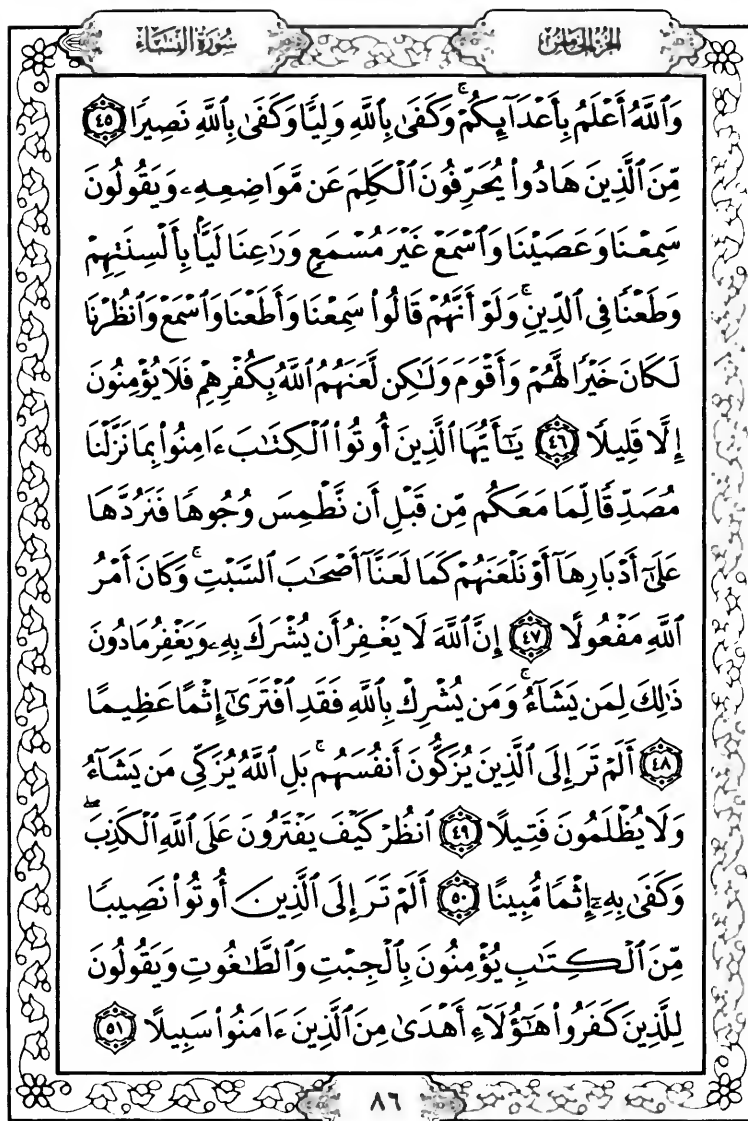 الجزء الخامس سورة النساء
وَٱللَّهُ أَعۡلَمُ بِأَعۡدَآئِكُمۡۚ وَكَفَىٰ بِٱللَّهِ وَلِيّٗا وَكَفَىٰ بِٱللَّهِ نَصِيرٗا ٤٥
مِّنَ ٱلَّذِينَ هَادُواْ يُحَرِّفُونَ ٱلۡكَلِمَ عَن مَّوَاضِعِهِۦ وَيَقُولُونَ
سَمِعۡنَا وَعَصَيۡنَا وَٱسۡمَعۡ غَيۡرَ مُسۡمَعٖ وَرَٰعِنَا لَيَّۢا بِأَلۡسِنَتِهِمۡ
وَطَعۡنٗا فِي ٱلدِّينِۚ وَلَوۡ أَنَّهُمۡ قَالُواْ سَمِعۡنَا وَأَطَعۡنَا وَٱسۡمَعۡ وَٱنظُرۡنَا
لَكَانَ خَيۡرٗا لَّهُمۡ وَأَقۡوَمَ وَلَٰكِن لَّعَنَهُمُ ٱللَّهُ بِكُفۡرِهِمۡ فَلَا يُؤۡمِنُونَ
إِلَّا قَلِيلٗا ٤٦ يَٰٓأَيُّهَا ٱلَّذِينَ أُوتُواْ ٱلۡكِتَٰبَ ءَامِنُواْ بِمَا نَزَّلۡنَا
مُصَدِّقٗا لِّمَا مَعَكُم مِّن قَبۡلِ أَن نَّطۡمِسَ وُجُوهٗا فَنَرُدَّهَا
عَلَىٰٓ أَدۡبَارِهَآ أَوۡ نَلۡعَنَهُمۡ كَمَا لَعَنَّآ أَصۡحَٰبَ ٱلسَّبۡتِۚ وَكَانَ أَمۡرُ
ٱللَّهِ مَفۡعُولًا ٤٧ إِنَّ ٱللَّهَ لَا يَغۡفِرُ أَن يُشۡرَكَ بِهِۦ وَيَغۡفِرُ مَا دُونَ
ذَٰلِكَ لِمَن يَشَآءُۚ وَمَن يُشۡرِكۡ بِٱللَّهِ فَقَدِ ٱفۡتَرَىٰٓ إِثۡمًا عَظِيمًا
٤٨ أَلَمۡ تَرَ إِلَى ٱلَّذِينَ يُزَكُّونَ أَنفُسَهُمۚ بَلِ ٱللَّهُ يُزَكِّي مَن يَشَآءُ
وَلَا يُظۡلَمُونَ فَتِيلًا ٤٩ ٱنظُرۡ كَيۡفَ يَفۡتَرُونَ عَلَى ٱللَّهِ ٱلۡكَذِبَۖ
وَكَفَىٰ بِهِۦٓ إِثۡمٗا مُّبِينًا ٥٠ أَلَمۡ تَرَ إِلَى ٱلَّذِينَ أُوتُواْ نَصِيبٗا
مِّنَ ٱلۡكِتَٰبِ يُؤۡمِنُونَ بِٱلۡجِبۡتِ وَٱلطَّٰغُوتِ وَيَقُولُونَ
لِلَّذِينَ كَفَرُواْ هَٰٓؤُلَآءِ أَهۡدَىٰ مِنَ ٱلَّذِينَ ءَامَنُواْ سَبِيلًا ٥١
٨٦